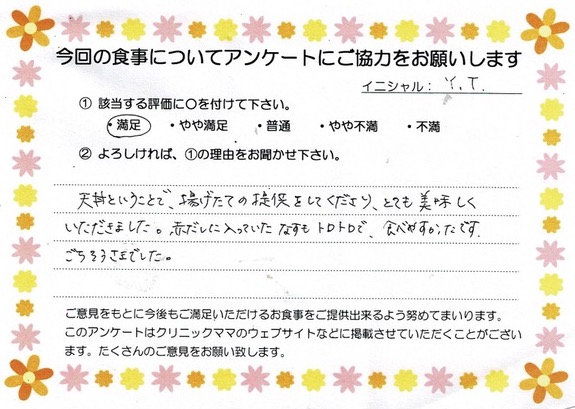 今回の食事についてアンケートにご協力をお願いします
イニシャル： Y.T.
① 該当する評価に○を付けて下さい。
・満足 ・やや満足 ・普通 ・やや不満 ・不満
② よろしければ、①の理由をお聞かせ下さい。
天丼ということで、揚げたての提供をしてくださり、とても美味しく
いただきました。赤だしに入っていたなすもトロトロで、食べやすかったです。
ごちそうさまでした。
ご意見をもとに今後もご満足いただけるお食事をご提供出来るよう努めてまいります。
このアンケートはクリニックママのウェブサイトなどに掲載させていただくことがござい
ます。たくさんのご意見をお願い致します。